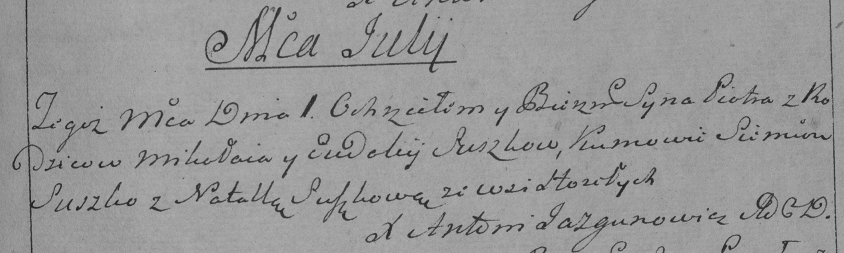 Mca Julij
Tegoż Mca Dnia 1. Ochrzciłem y Bierzm Syna Piotra z Ro
dzicow Mikołaia y Eudokij Suszkow, Kumowie Siemion
Suszko z Natalką Suszkową ze wsi
X Antoni Jazgunowicz